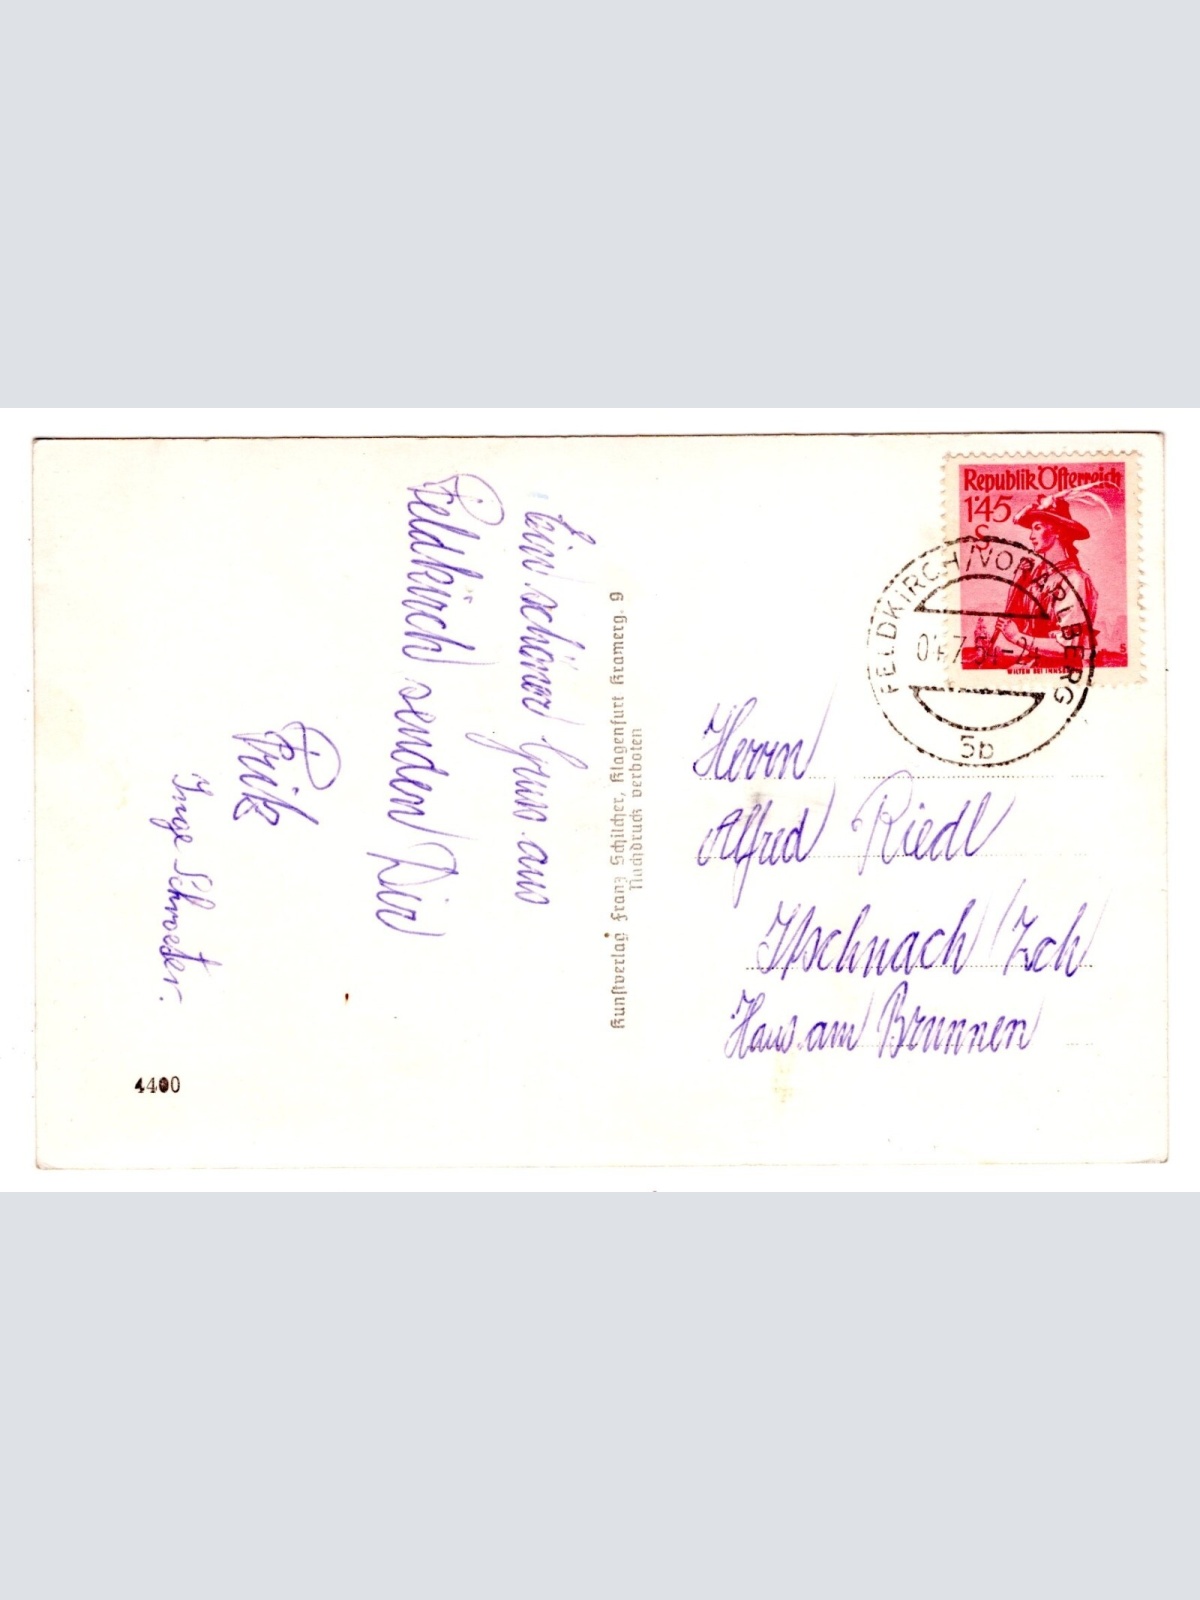 Ein schöner Gruss aus
Feldkirch senden Dir
Fritz
Inge Schroeder.
4400
Kunstverlag Franz Schilcher, Klagenfurt Kramerg. 9
Nachdruck verboten
Republik Österreich
1'45
S
WILTEN BEI INNSBRUCK
FELDKIRCH/VORARLBERG
5b
Herrn
Alfred Riedl
Itschnach / Zch
Haus am Brunnen